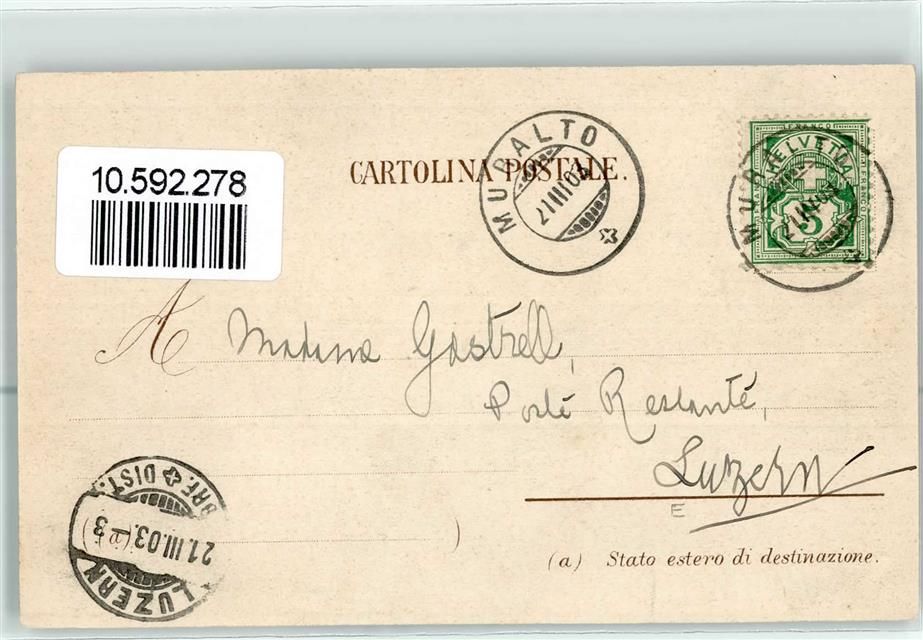 10.592.278
CARTOLINA POSTALE.
MURALTO
21 III 03
FRANCO
HELVETIA
5
A Madame Gostrell,
Poste Restante,
Luzern
E
(a)
(a) Stato estero di destinazione.
BRF. DIST.
21.III.03.-3
LUZERN